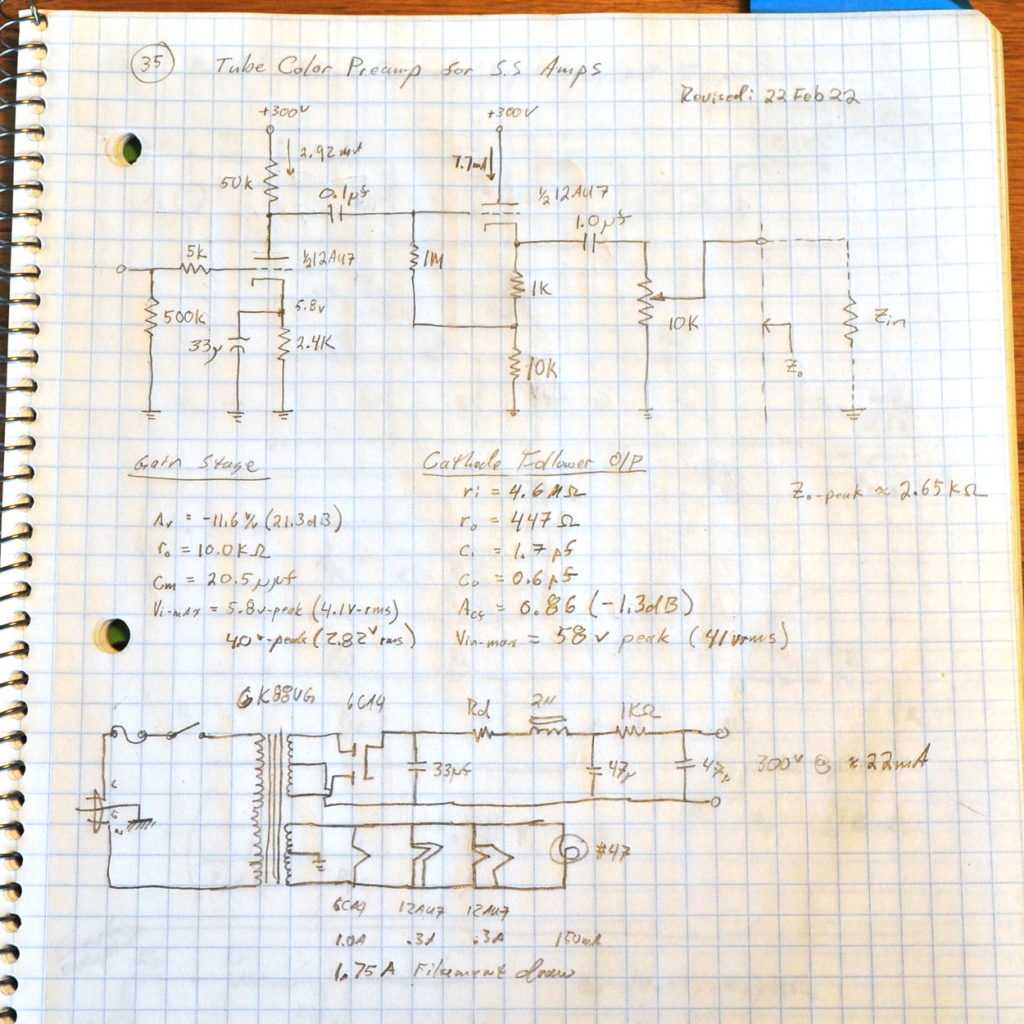 35 Tube Color Preamp for S.S Amps
Revised: 22 Feb 22
+300V
+300V
2.92mA
7.7mA
50K
0.1μf
½12AU7
1.0μf
5K
½12AU7
1M
1K
500K
5.8v
10K
Zin
33μ
2.4K
10K
Zo
Gain Stage
Cathode Follower O/P
ri = 4.6MΩ
Zo-peak ≈ 2.65KΩ
Av = -11.6 % (21.3dB)
ro = 447Ω
ro = 10.0KΩ
Ci = 1.7pf
Cm = 20.5μμf
Co = 0.6pf
Vi-max = 5.8v-peak (4.1v-rms)
Acf = 0.86 (-1.3dB)
40v-peak (2.82v rms)
Vin-max = 58v peak (41vrms)
6K88VG
6CA4
Rd
2H
1KΩ
33μf
47μ
47μ
300v @ ≈22mA
#47
6CA4 12AU7 12AU7
1.0A .3A .3A 150mA
1.75A Filament draw